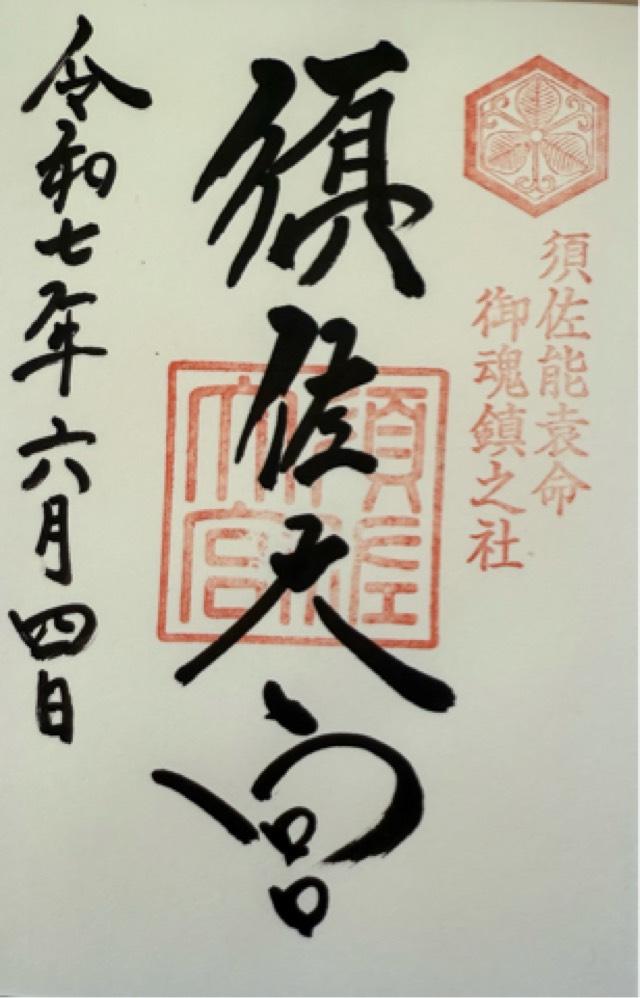 須佐能袁命
御魂鎮之社
須佐大宮
須佐
大宮
令和七年六月四日